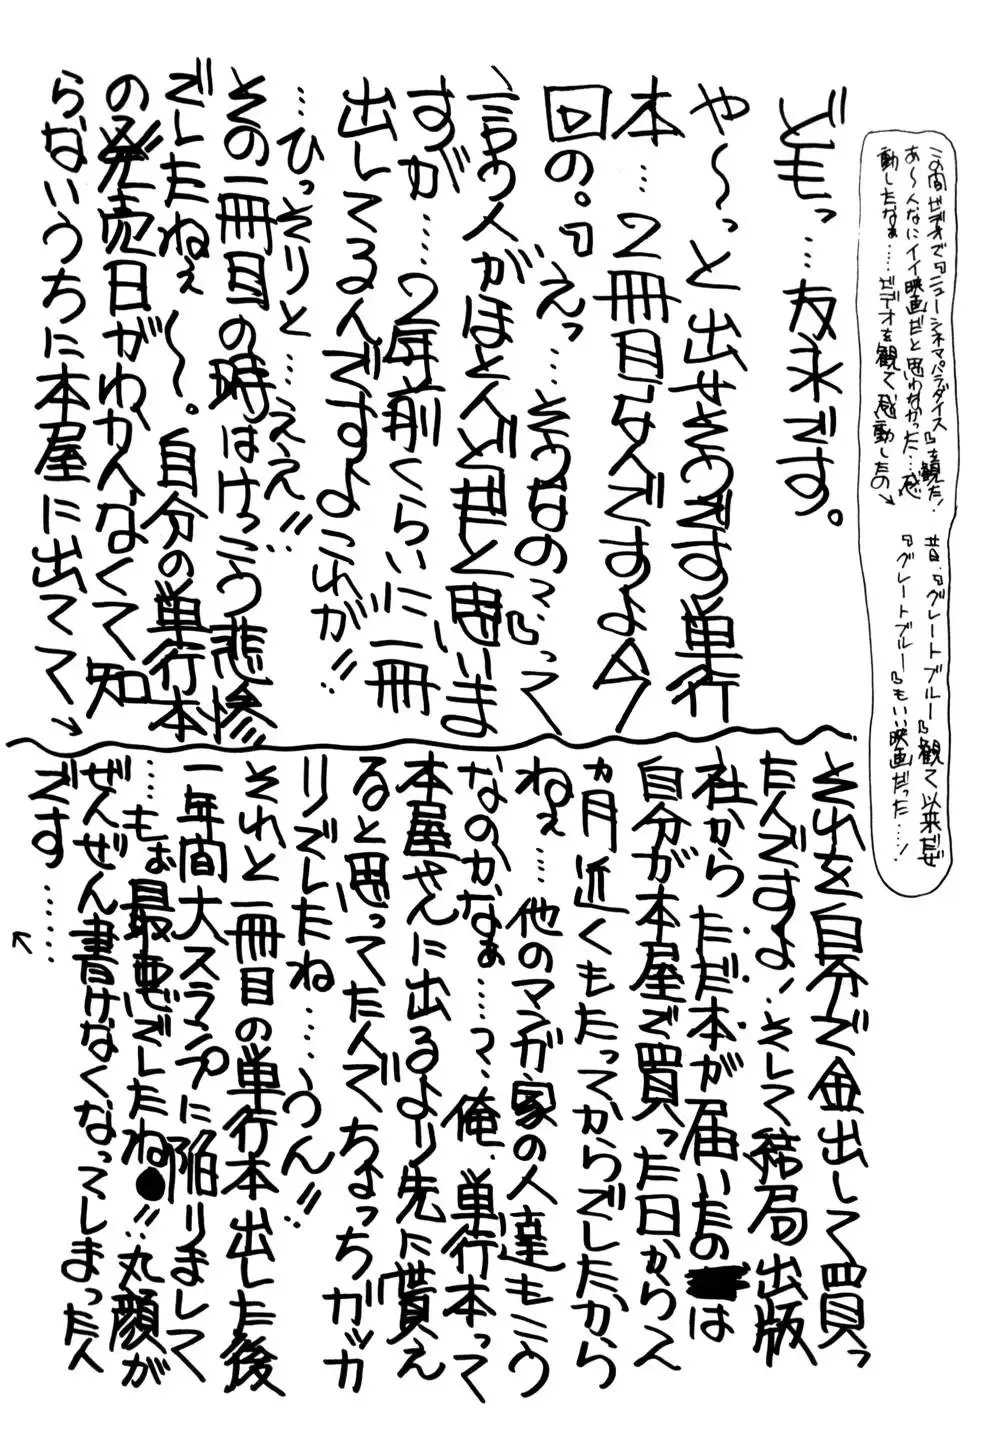 この間ビデオで『ニューシネマパラダイス』を観た!
あ〜んなにイイ映画だと思わなかった…感
動したなぁ……ビデオを観て感動したの→
昔、『グレートブルー』観て以来だぜ
『グレートブルー』もいい映画だった……!
どもっ…友永です。
や〜っと出せそうです単行
本…2冊目なんですよ今
回の。『えっ…そうなの…』って
言う人がほとんどだと思いま
すが……2年前くらいに一冊
出してるんですよこれが!!
…ひっそりと…ええ!!
その一冊目の時はけっこう悲惨
でしたねぇ〜。自分の単行本
の発売日がわかんなくて知
らないうちに本屋に出てて→
それを自分で金出して買っ
たんですよ、そして結局出版
社からただ本が届いたのは
自分が本屋で買った日から一
ヵ月近くもたってからでしたから
ねぇ……他のマンガ家の人達もこう
なのかなぁ……俺、単行本って
本屋さんに出るより先に貰え
ると思ってたんでちょっちガッカ
リでしたね……うん!!
それと一冊目の単行本出した後
一年間大スランプに陥りまして
…もぉ最悪でしたね!!丸顔が
ぜんぜん書けなくなってしまったん
です……